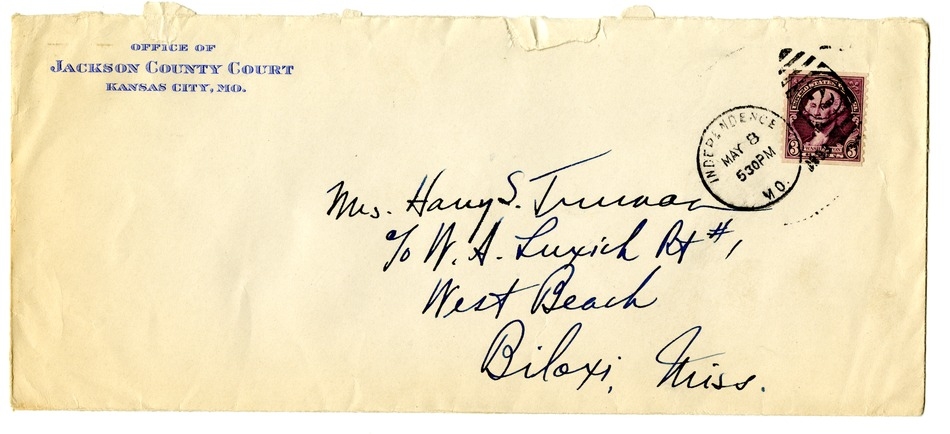 OFFICE OF
JACKSON COUNTY COURT
KANSAS CITY, MO.
INDEPENDENCE
MAY 8
530PM
MO.
3 3
Mrs. Harry S. Truman
c/o W. A. Luxich Rt #1
West Beach
Biloxi, Miss.